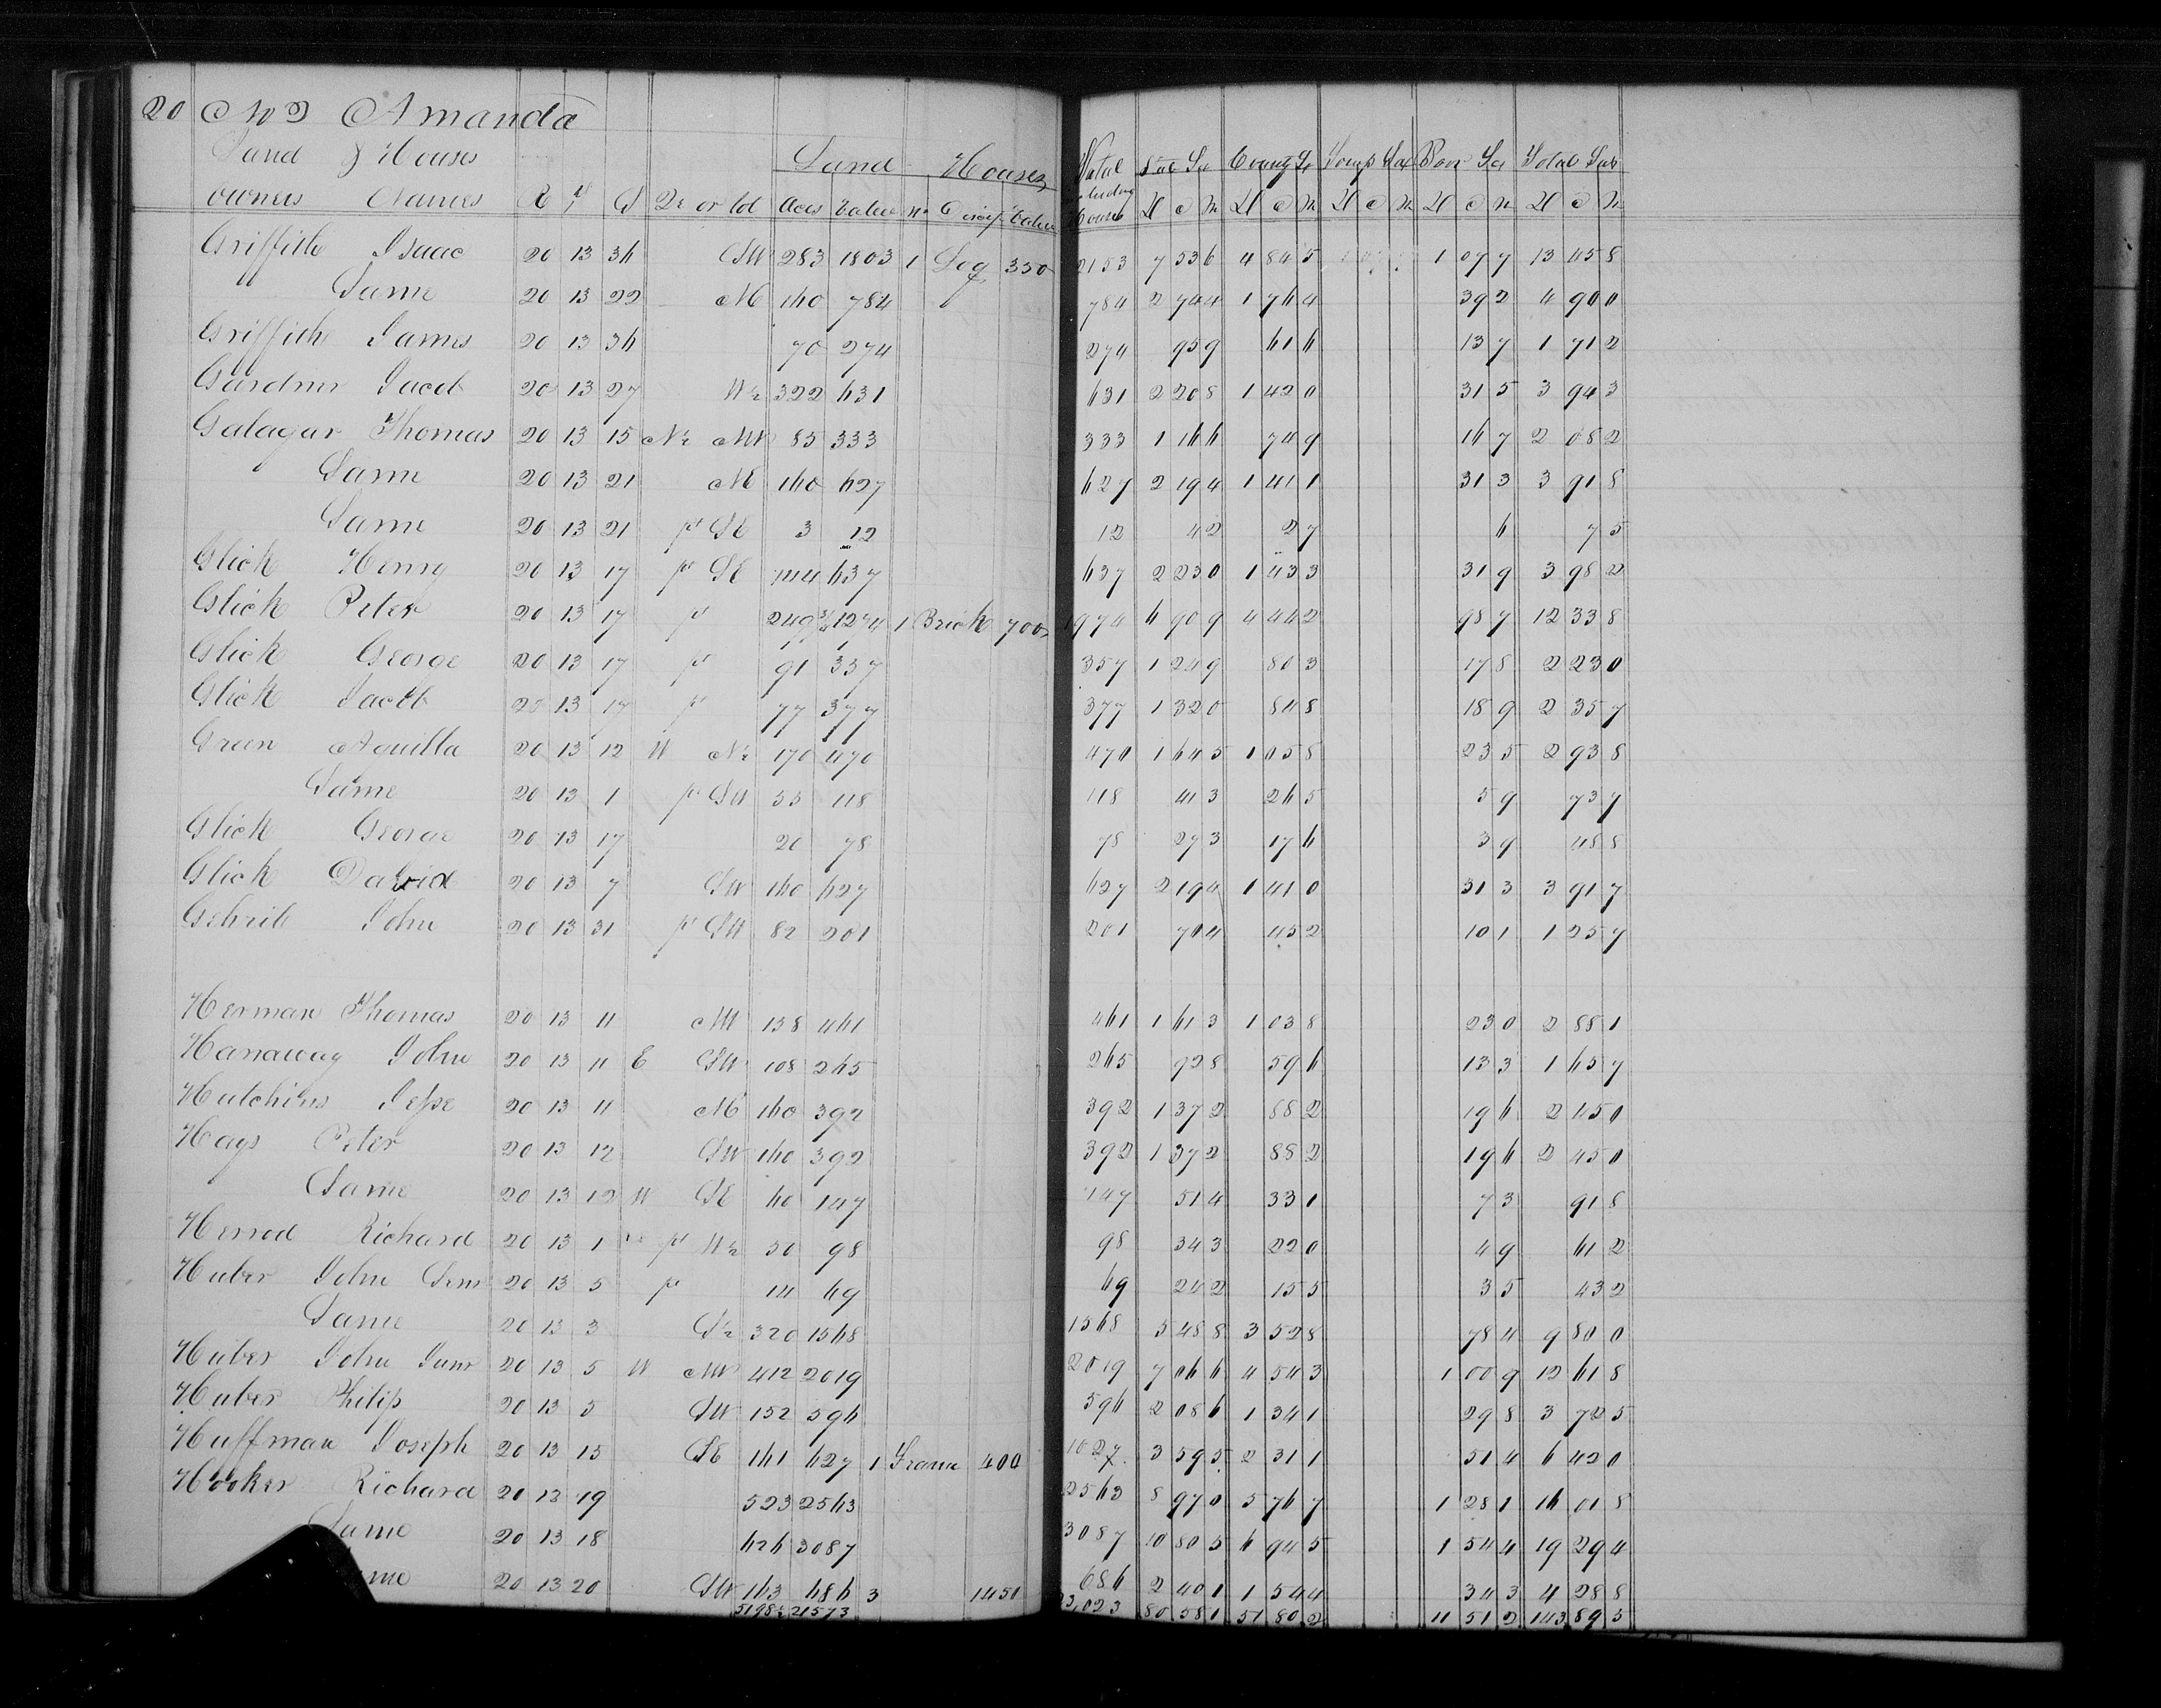 20 No 2 Amanda
Land & Houses Land Houses Total State Tx County Tx Townsp Tax Poor Tx Total Tax
owners Names R T S Qr or lot Acres Value No Discrip Value including House D c M D c M D c M D c M D c M
Griffith Isaac 20 13 36 SW 283 1803 1 Log 350 2153 7 53 6 4 84 5 1 07 7 13 45 8
Same 20 13 22 NE 160 784 784 2 74 4 1 76 4 39 2 4 90 0
Griffith James 20 13 36 70 274 274 95 9 61 6 13 7 1 71 2
Gardner Jacob 20 13 27 W½ 322 631 631 2 20 8 1 42 0 31 5 3 94 3
Galagar Thomas 20 13 15 N½ NW 85 333 333 1 16 6 74 9 16 7 2 08 2
Same 20 13 21 NE 160 627 627 2 19 4 1 41 1 31 3 3 91 8
Same 20 13 21 pt SE 3 12 12 4 2 2 7 6 7 5
Glick Henry 20 13 17 pt SE 144 637 637 2 23 0 1 43 3 31 9 3 98 2
Glick Peter 20 13 17 pt 249¾ 1274 1 Brick 700 1974 6 90 9 4 44 2 98 7 12 33 8
Glick George 20 13 17 pt 91 357 357 1 24 9 80 3 17 8 2 23 0
Glick Jacob 20 13 17 pt 77 377 377 1 32 0 84 8 18 9 2 35 7
Green Aquilla 20 13 12 W N½ 170 470 470 1 64 5 1 05 8 23 5 2 93 8
Same 20 13 1 pt SW 55 118 118 41 3 26 5 5 9 73 7
Glick George 20 13 17 20 78 78 27 3 17 6 3 9 48 8
Glick David 20 13 7 SW 160 627 627 2 19 4 1 41 0 31 3 3 91 7
Gehrib John 20 13 31 pt SW 82 201 201 70 4 45 2 10 1 1 25 7
Herman Thomas 20 13 11 NW 138 461 461 1 61 3 1 03 8 23 0 2 88 1
Hanaway John 20 13 11 E SW 108 265 265 92 8 59 6 13 3 1 65 7
Hutchins Jesse 20 13 11 NE 160 392 392 1 37 2 88 2 19 6 2 45 0
Hays Peter 20 13 12 SW 160 392 392 1 37 2 88 2 19 6 2 45 0
Same 20 13 12 W SE 60 147 147 51 4 33 1 7 3 91 8
Herrod Richard 20 13 1 pt W½ 50 98 98 34 3 22 0 4 9 61 2
Huber John Senr 20 13 5 pt 14 69 69 24 2 15 5 3 5 43 2
Same 20 13 3 S½ 320 1568 1568 5 48 8 3 52 8 78 4 9 80 0
Huber John Junr 20 13 5 W NW 412 2019 2019 7 06 6 4 54 3 1 00 9 12 61 8
Huber Philip 20 13 5 SW 152 596 596 2 08 6 1 34 1 29 8 3 72 5
Huffman Joseph 20 13 15 SE 161 627 1 Frame 400 1027 3 59 5 2 31 1 51 4 6 42 0
Hooker Richard 20 13 19 523 2563 2563 8 97 0 5 76 7 1 28 1 16 01 8
Same 20 13 18 626 3087 3087 10 80 5 6 94 5 1 54 4 19 29 4
me 20 13 20 SW 163 686 3 1450 686 2 40 1 1 54 4 34 3 4 28 8
5198½ 21573 23,023 80 58 1 51 80 2 11 51 2 143 89 5